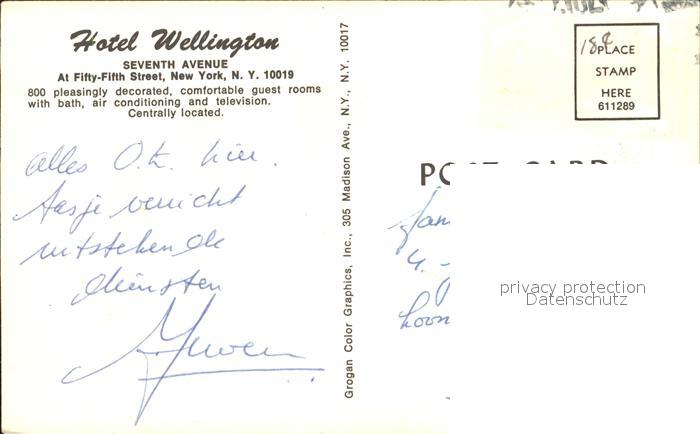 Hotel Wellington
SEVENTH AVENUE
At Fifty-Fifth Street, New York, N. Y. 10019
800 pleasingly decorated, comfortable guest rooms
with bath, air conditioning and television.
Centrally located.
alles O.K. hier.
Aasje verricht
uitstekende
diensten
Grogan Color Graphics, Inc., 305 Madison Ave., N.Y., N.Y. 10017
18¢
PLACE
STAMP
HERE
611289
POST CARD
4. -
privacy protection
Datenschutz